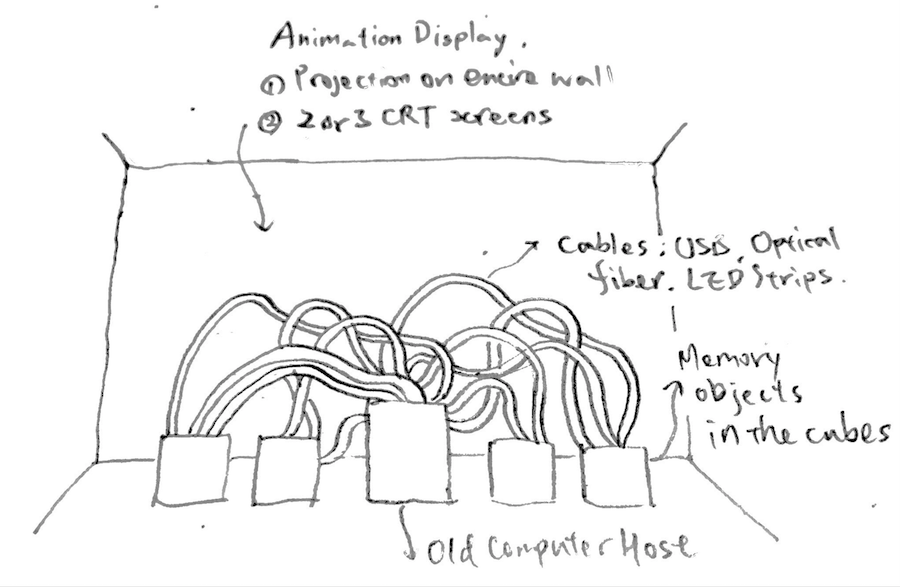 Animation Display.
① Projection on entire wall
② 2 or 3 CRT screens
Cables: USB, Optical
fiber. LED Strips.
Memory
objects
in the cubes
Old Computer Host